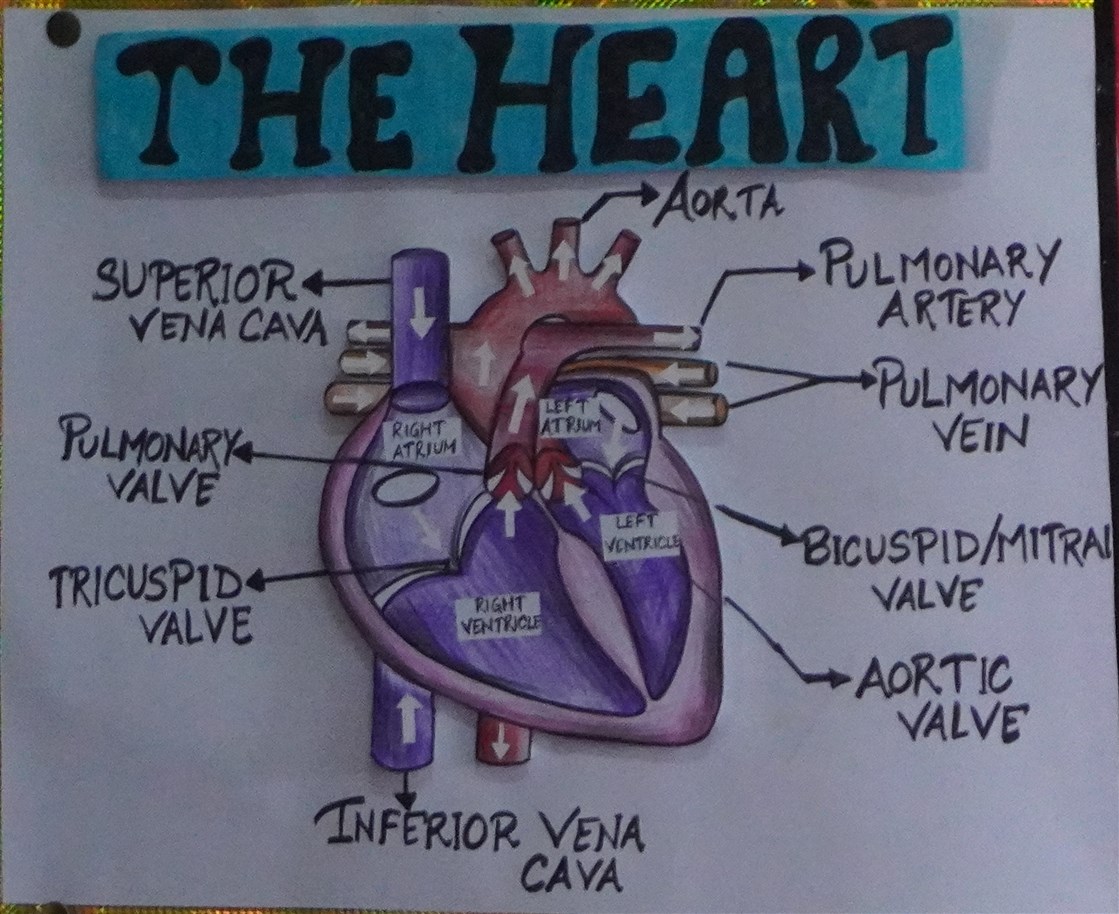 THE HEART
AORTA
SUPERIOR
VENA CAVA
PULMONARY
ARTERY
PULMONARY
VEIN
LEFT
ATRIUM
RIGHT
ATRIUM
PULMONARY
VALVE
LEFT
VENTRICLE
BICUSPID/MITRAL
VALVE
TRICUSPID
VALVE
RIGHT
VENTRICLE
AORTIC
VALVE
INFERIOR VENA
CAVA